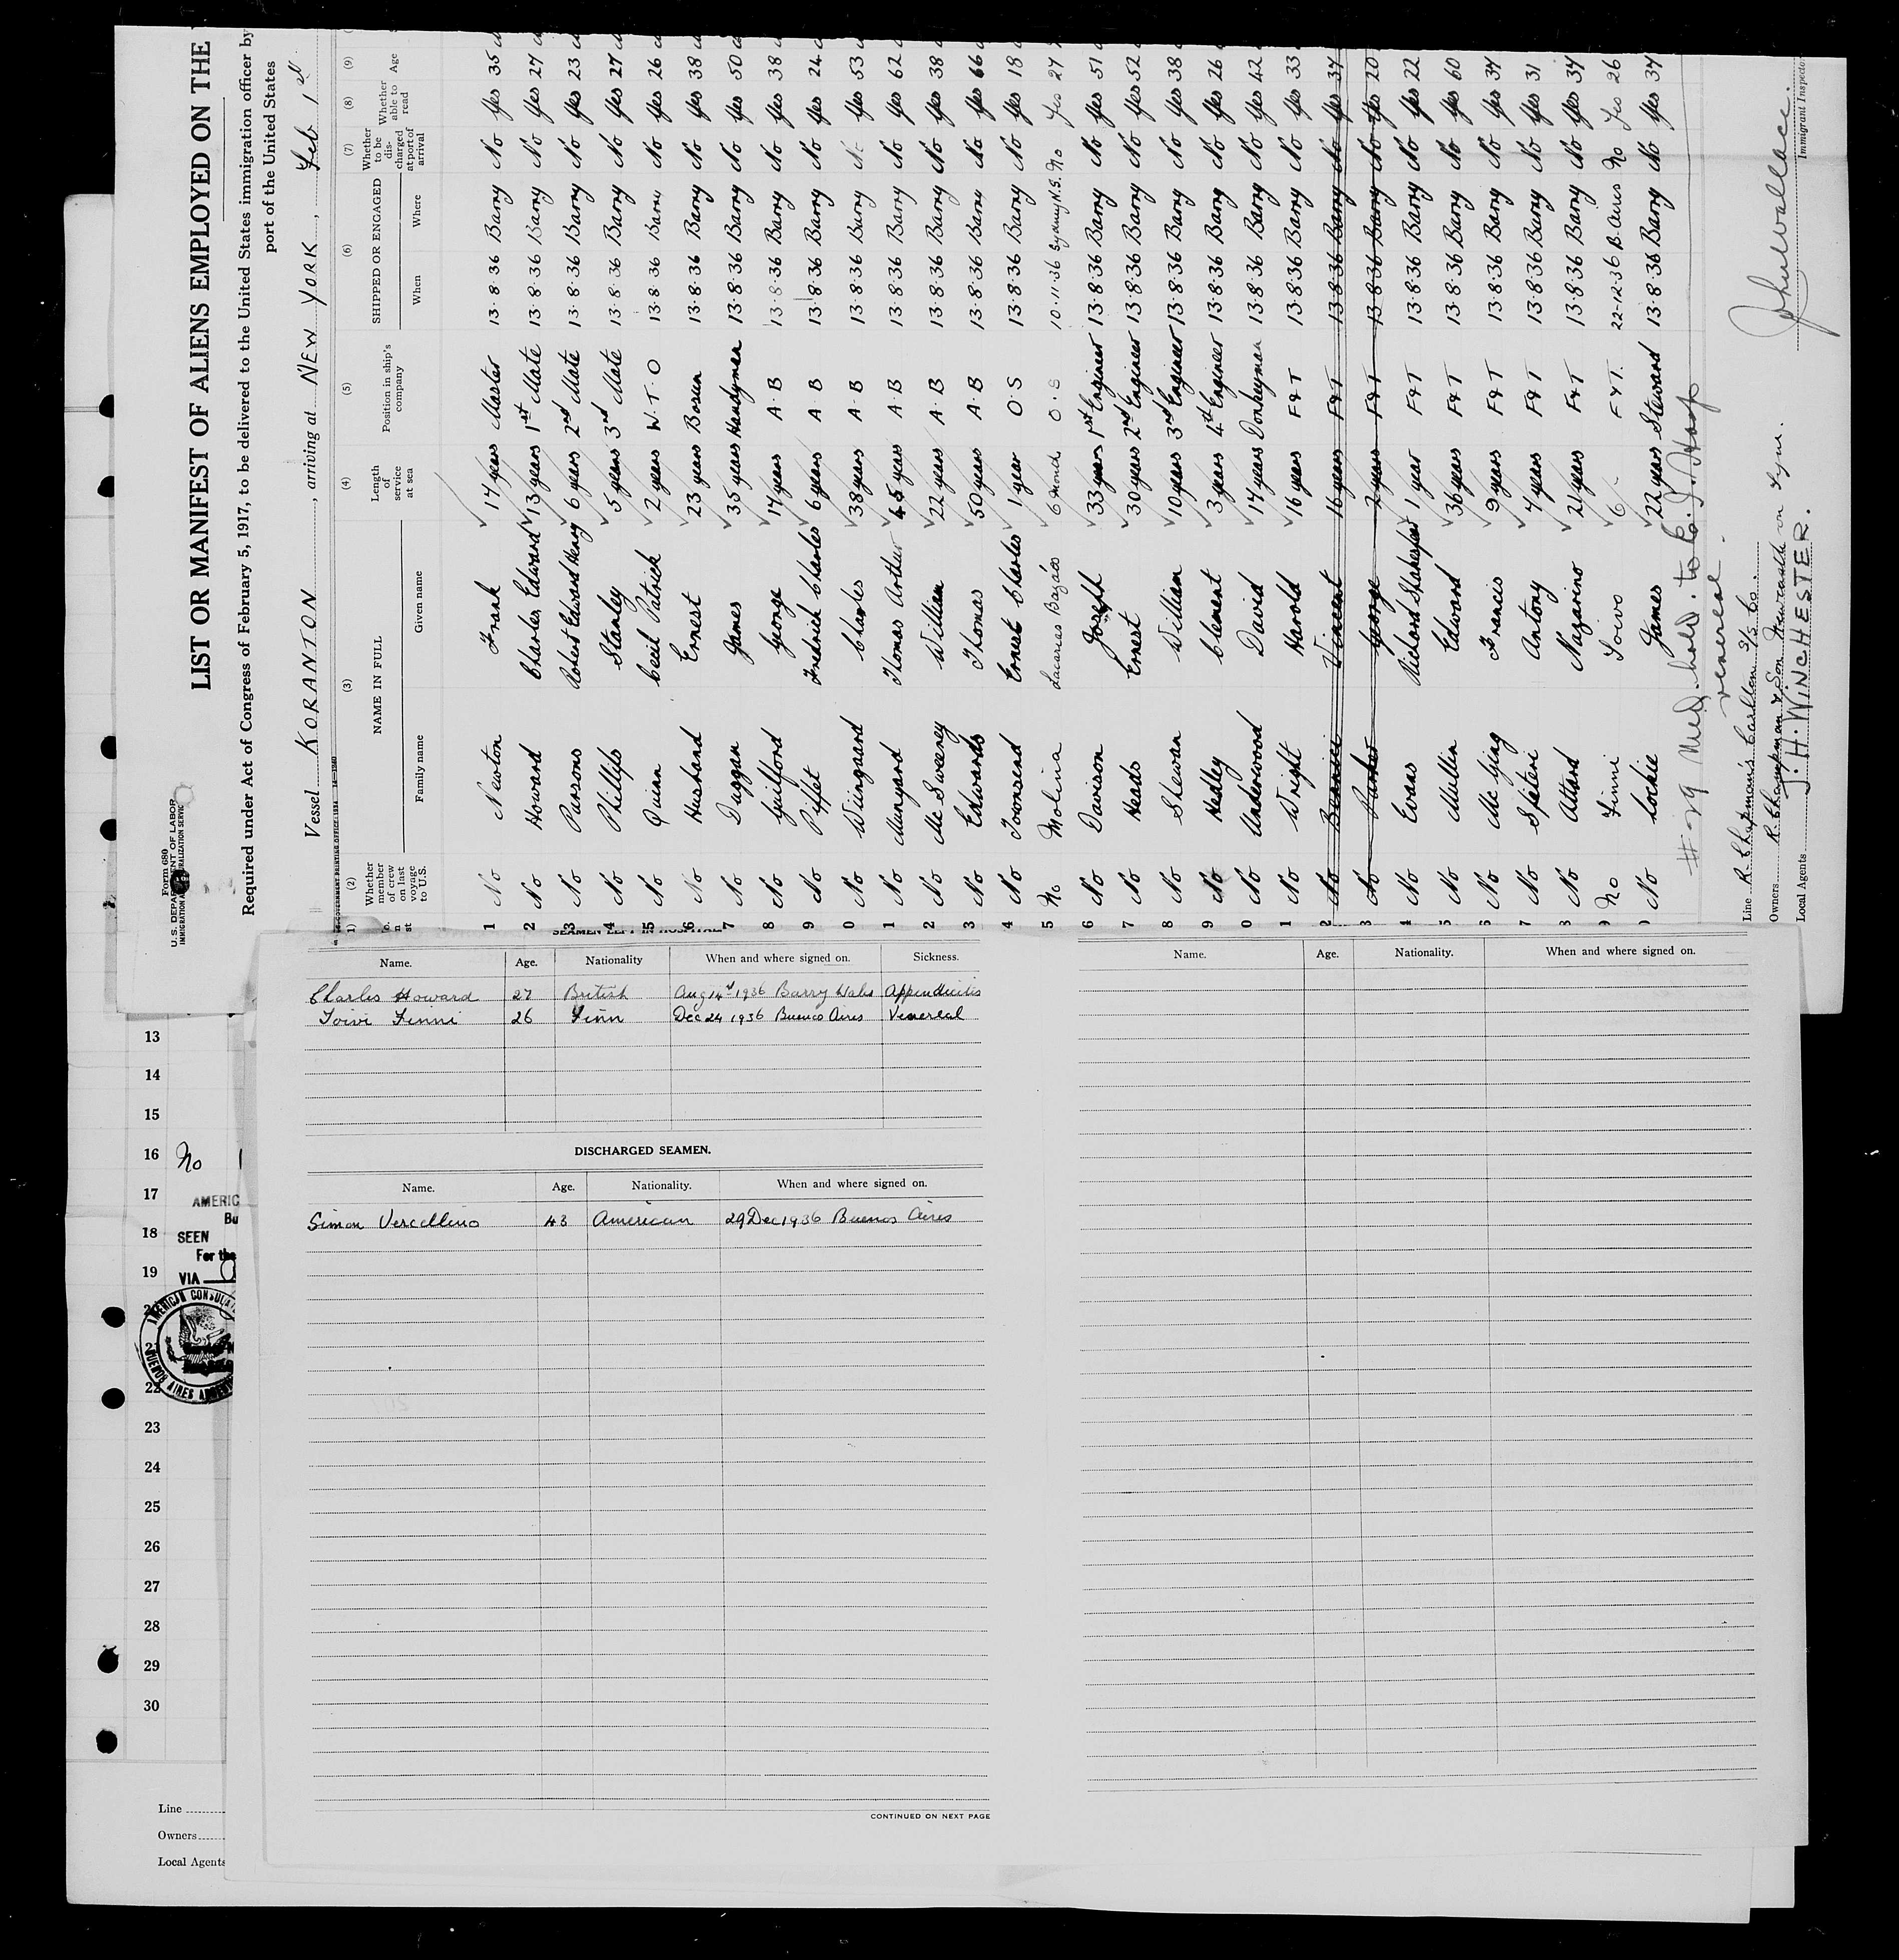 Form 680
U.S. DEPARTMENT OF LABOR
IMMIGRATION AND NATURALIZATION SERVICE
LIST OR MANIFEST OF ALIENS EMPLOYED ON THE
Required under Act of Congress of February 5, 1917, to be delivered to the United States immigration officer by
port of the United States
Vessel KORANTON, arriving at NEW YORK, Feb 1st
(2) Whether member of crew on last voyage to U.S. (3) NAME IN FULL Family name Given name (4) Length of service at sea (5) Position in ship's company (6) SHIPPED OR ENGAGED When Where (7) Whether to be discharged at port of arrival (8) Whether able to read (9) Age
1 No Newton Frank 14 years Master 13.8.36 Barry No Yes 35
2 No Howard Charles Edward 13 years 1st Mate 13.8.36 Barry No Yes 27
3 No Parsons Robert Edward Henry 6 years 2nd Mate 13.8.36 Barry No Yes 23
4 No Phillips Stanley 5 years 3rd Mate 13.8.36 Barry No Yes 27
5 No Quinn Cecil Patrick 2 years W.T.O 13.8.36 Barry No Yes 26
6 No Husband Ernest 23 years Bosun 13.8.36 Barry No Yes 38
7 No Duggan James 35 years Handyman 13.8.36 Barry No Yes 50
8 No Guilford George 17 years A.B 13.8.36 Barry No Yes 38
9 No Piffet Fredrick Charles 6 years A B 13.8.36 Barry No Yes 24
0 No Wiingaard Charles 38 years A.B 13.8.36 Barry No Yes 53
1 No Munyard Thomas Arthur 45 years A.B 13.8.36 Barry No Yes 62
2 No McSweeney William 22 years A.B 13.8.36 Barry No Yes 38
3 No Edwards Thomas 50 years A.B 13.8.36 Barry No Yes 66
4 No Townsend Ernest Charles 1 year O.S 13.8.36 Barry No Yes 18
5 No Molina 6 month O.S 10-11-36 Sydney N.S. No Yes 27
6 No Davison Joseph 33 years 1st Engineer 13.8.36 Barry No Yes 51
7 No Heads Ernest 30 years 2nd Engineer 13.8.36 Barry No Yes 52
8 No Shewan William 10 years 3rd Engineer 13.8.36 Barry No Yes 38
9 No Hedley Clement 3 years 4th Engineer 13.8.36 Barry No Yes 26
0 No Underwood David 14 years Donkeyman 13.8.36 Barry No Yes 42
1 No Wright Harold 16 years F&T 13.8.36 Barry No Yes 33
2 No Vincent 16 years F&T 13.8.36 Barry No Yes 37
3 No George 2 years F&T 13.8.36 Barry No Yes 20
4 No Evans Richard 1 year F&T 13.8.36 Barry No Yes 22
5 No Mullin Edward 36 years F&T 13.8.36 Barry No Yes 60
6 No Francis 9 years F&T 13.8.36 Barry No Yes 34
7 No Spiteri Antony 4 years F&T 13.8.36 Barry No Yes 31
8 No Attard Nazarino 21 years F&T 13.8.36 Barry No Yes 34
9 No Finni Toivo 6 F&T. 22-12-36 B. Aires No Yes 26
0 No Lockie James 22 years Steward 13.8.36 Barry No Yes 34
#29 Med. hold. to Hosp
venereal.
Line R. Chapman's Carlton S/S Co.
Owners R. Chapman & Son Newcastle on Tyne.
Local Agents J. H. WINCHESTER.
John Wallace.
Immigrant Inspector
SEAMEN LEFT IN HOSPITAL
Name. Age. Nationality When and where signed on. Sickness.
Charles Howard 27 British Aug 14th 1936 Barry Wales Appendicitis
Toivi Finni 26 Finn Dec 24 1936 Buenos Aires Venereal
DISCHARGED SEAMEN.
Name. Age. Nationality. When and where signed on.
Simon Vercellino 43 American 29 Dec 1936 Buenos Aires
CONTINUED ON NEXT PAGE
Name. Age. Nationality. When and where signed on.
13
14
15
16 No
17
AMERIC
Bu
18 SEEN
For the
19
VIA
AMERICAN CONSULA
BUENOS AIRES ARGENT
22
23
24
25
26
27
28
29
30
Line
Owners
Local Agents